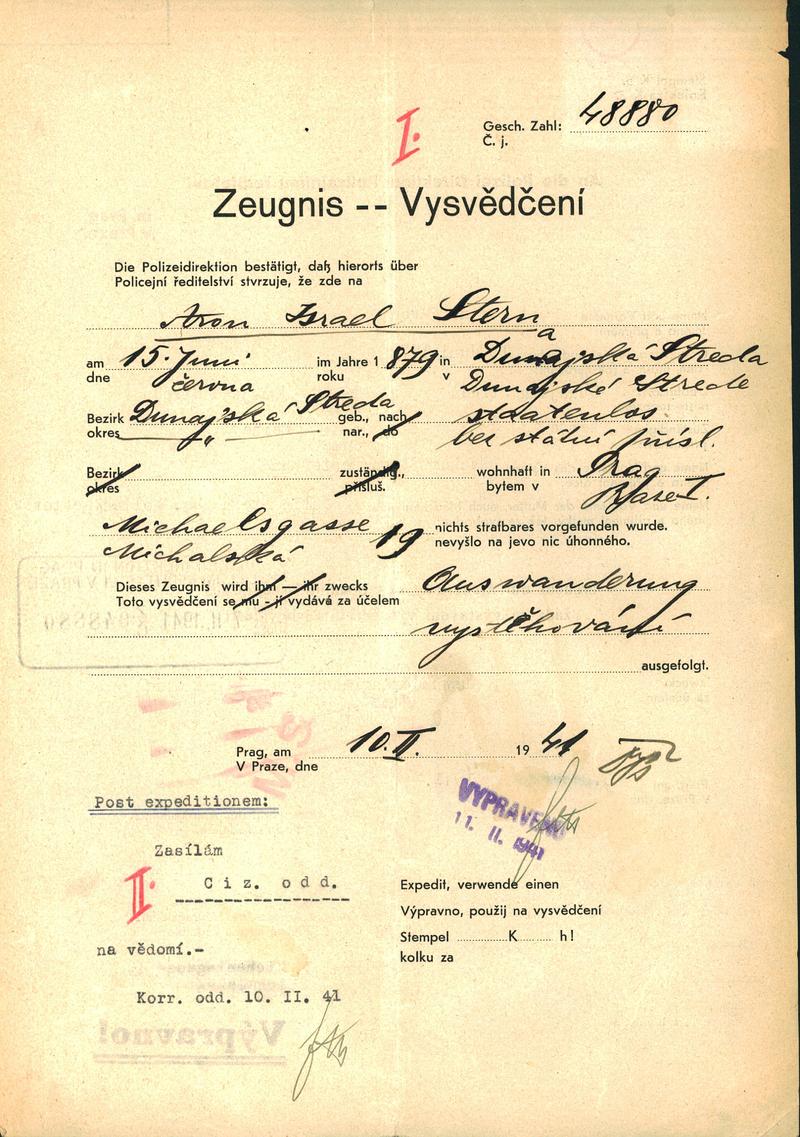 I.
Gesch. Zahl: 48880
Č. j.
Zeugnis -- Vysvědčení
Die Polizeidirektion bestätigt, daß hierorts über
Policejní ředitelství stvrzuje, že zde na
Aron Israel Stern
a
am 15. Juni im Jahre 1 879 in Dunajská Streda
dne června roku v Dunajské Stredě
Bezirk Dunajská Streda geb., nach staatenlos
okres " nar., do bez státní přísl.
Bezirk zuständig., wohnhaft in Prag
okres přísluš. bytem v Praze I.
Michaelsgasse 19 nichts strafbares vorgefunden wurde.
Michalská nevyšlo na jevo nic úhonného.
Dieses Zeugnis wird ihm — ihr zwecks Auswanderung
Toto vysvědčení se mu - jí vydává za účelem
vystěhování
ausgefolgt.
Prag, am 10. II. 19 41
V Praze, dne
Post expeditionem:
VYPRAVENO
11. II. 1941
Zasílám
II.
Ciz. odd.
Expedit, verwende einen
Výpravno, použij na vysvědčení
Stempel K h!
kolku za
na vědomí.-
Korr. odd. 10. II. 41
Výpravno!